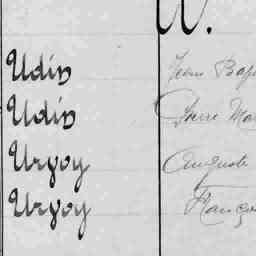 U.
Udin Jean Bap
Udin Pierre Mar
Urvoy Auguste
Urvoy Franço